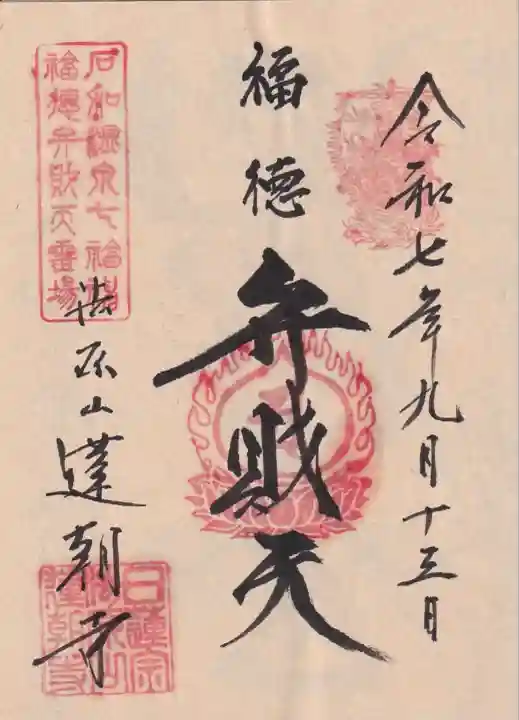 令和七年九月十三日
福徳
弁財天
石和温泉七福神
福徳弁財天霊場
蓮朝寺
日蓮宗